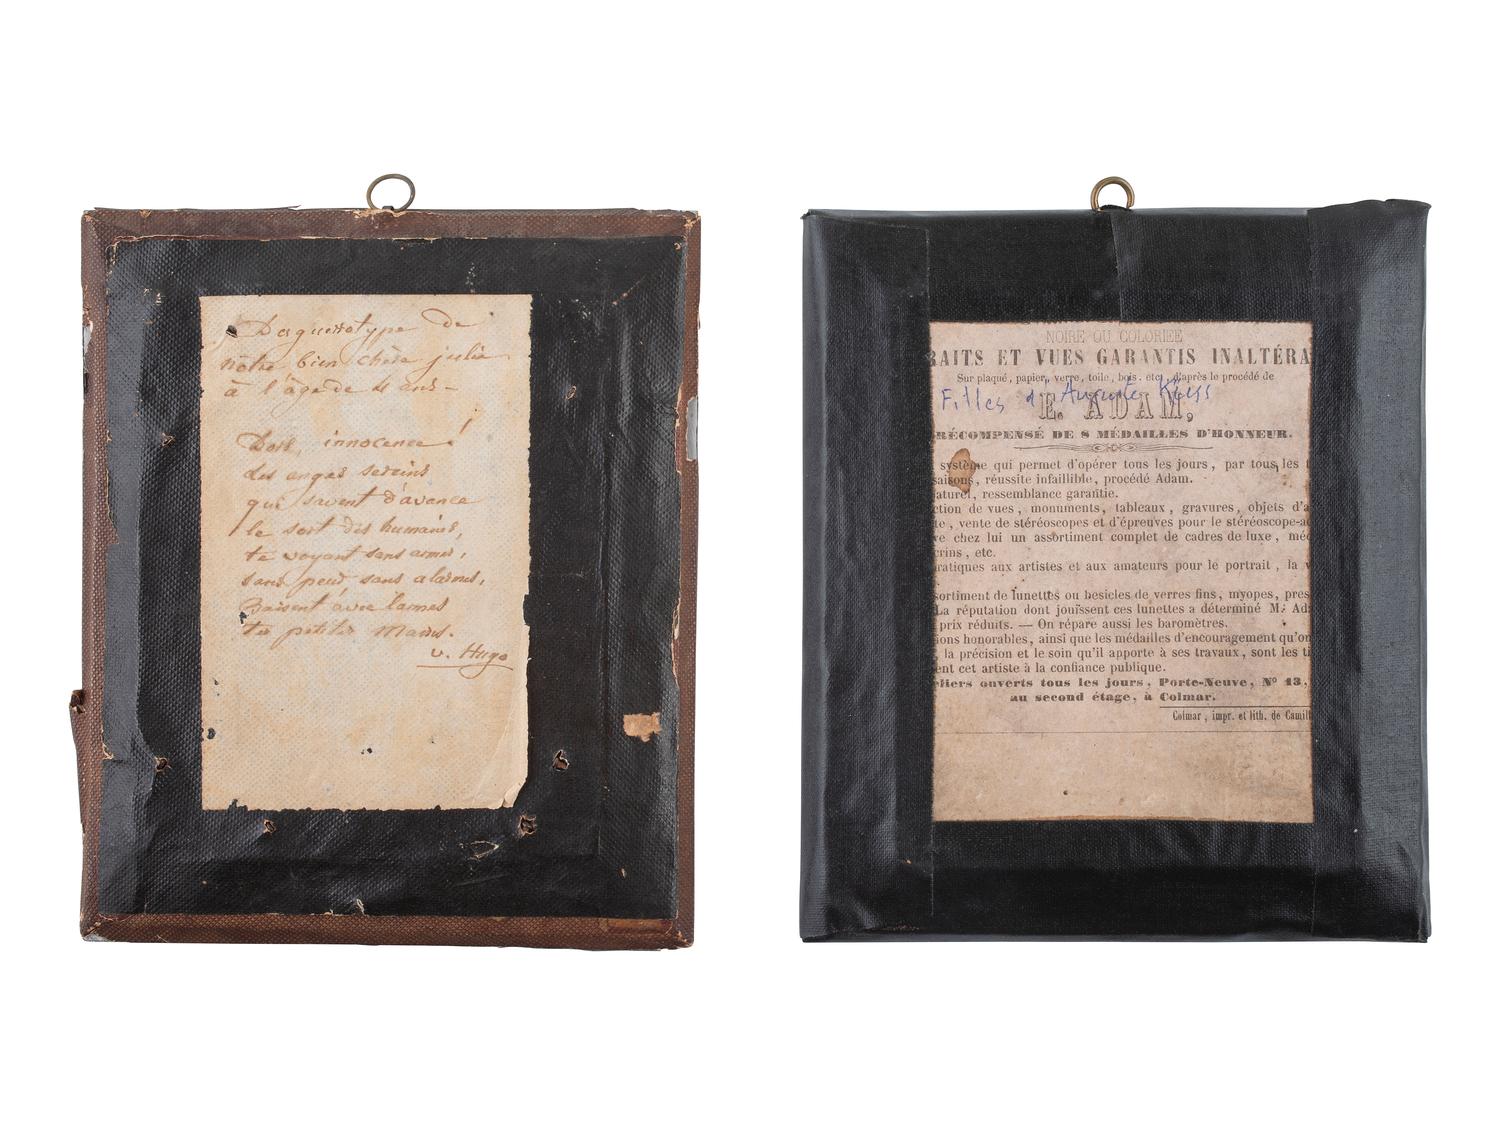 Daguerrotype de
nôtre bien chère julie
à l'âge de 11 ans -
Dors, innocence!
des anges sereins
qui savent d'avance
le sort des humains,
te voyant sans armes,
sans peur sans alarmes,
Baisent avec larmes
tes petites mains.
v. Hugo
NOIRE OU COLORIÉE
RAITS ET VUES GARANTIS INALTÉRA
Sur plaqué, papier, verre, toile, bois. etc. d'après le procédé de
Filles d'Auguste
E. ADAM,
RÉCOMPENSÉ DE 8 MÉDAILLES D'HONNEUR.
système qui permet d'opérer tous les jours, par tous les t
saisons, réussite infaillible, procédé Adam.
aturel, ressemblance garantie.
ction de vues, monuments, tableaux, gravures, objets d'a
te, vente de stéréoscopes et d'épreuves pour le stéréoscope-a
ve chez lui un assortiment complet de cadres de luxe, méd
crins, etc.
ratiques aux artistes et aux amateurs pour le portrait, la v
sortiment de lunettes ou besicles de verres fins, myopes, pres
La réputation dont jouissent ces lunettes a déterminé M. Ad
prix réduits. — On répare aussi les baromètres.
ions honorables, ainsi que les médailles d'encouragement qu'on
la précision et le soin qu'il apporte à ses travaux, sont les ti
ent cet artiste à la confiance publique.
eliers ouverts tous les jours, Porte-Neuve, N° 13,
au second étage, à Colmar.
Colmar, impr. et lith. de Camill